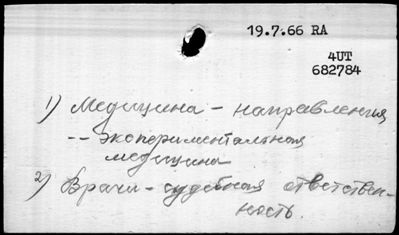 19.7.66 RA
4UT
682784
1) Медицина - направления
-- экспериментальная
медицина
2) Врачи - судебная ответствен-
ность.